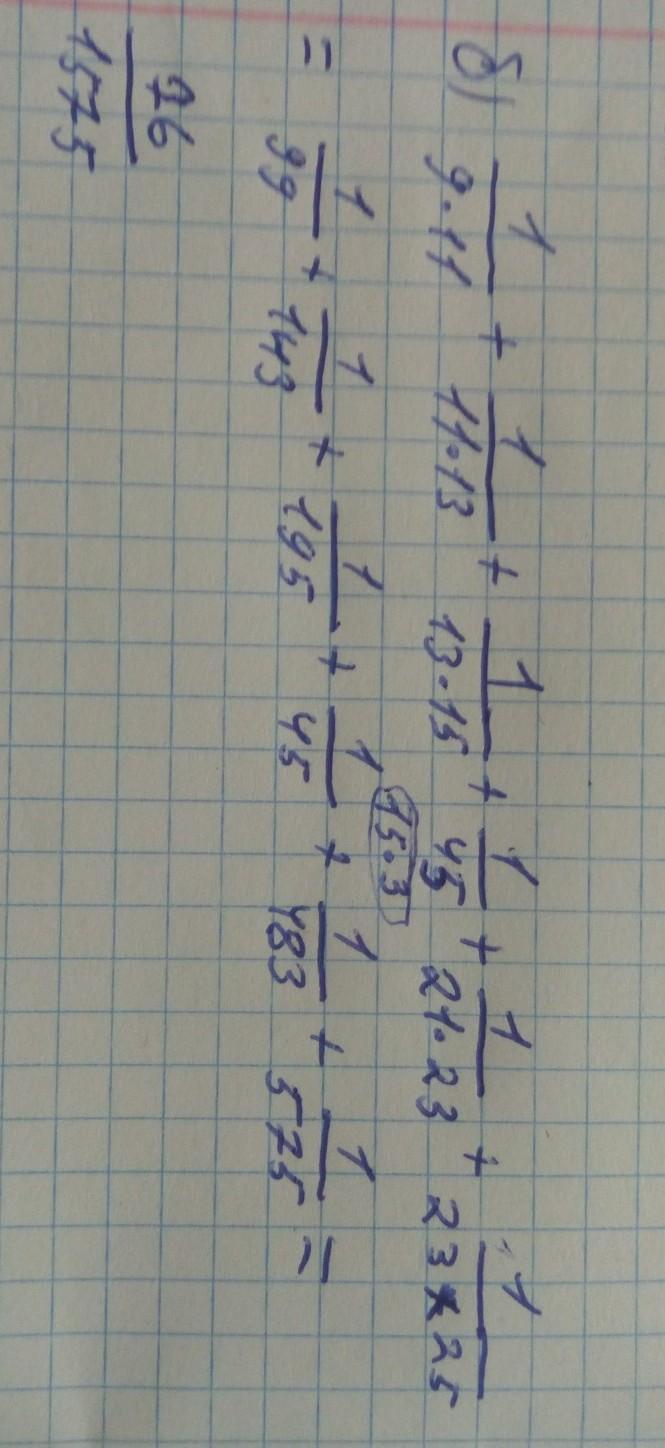 б) 1/(9·11) + 1/(11·13) + 1/(13·15) + 1/45 + 1/(21·23) + 1/(23×25)
15·3
= 1/99 + 1/143 + 1/195 + 1/45 + 1/483 + 1/575 =
76/1575